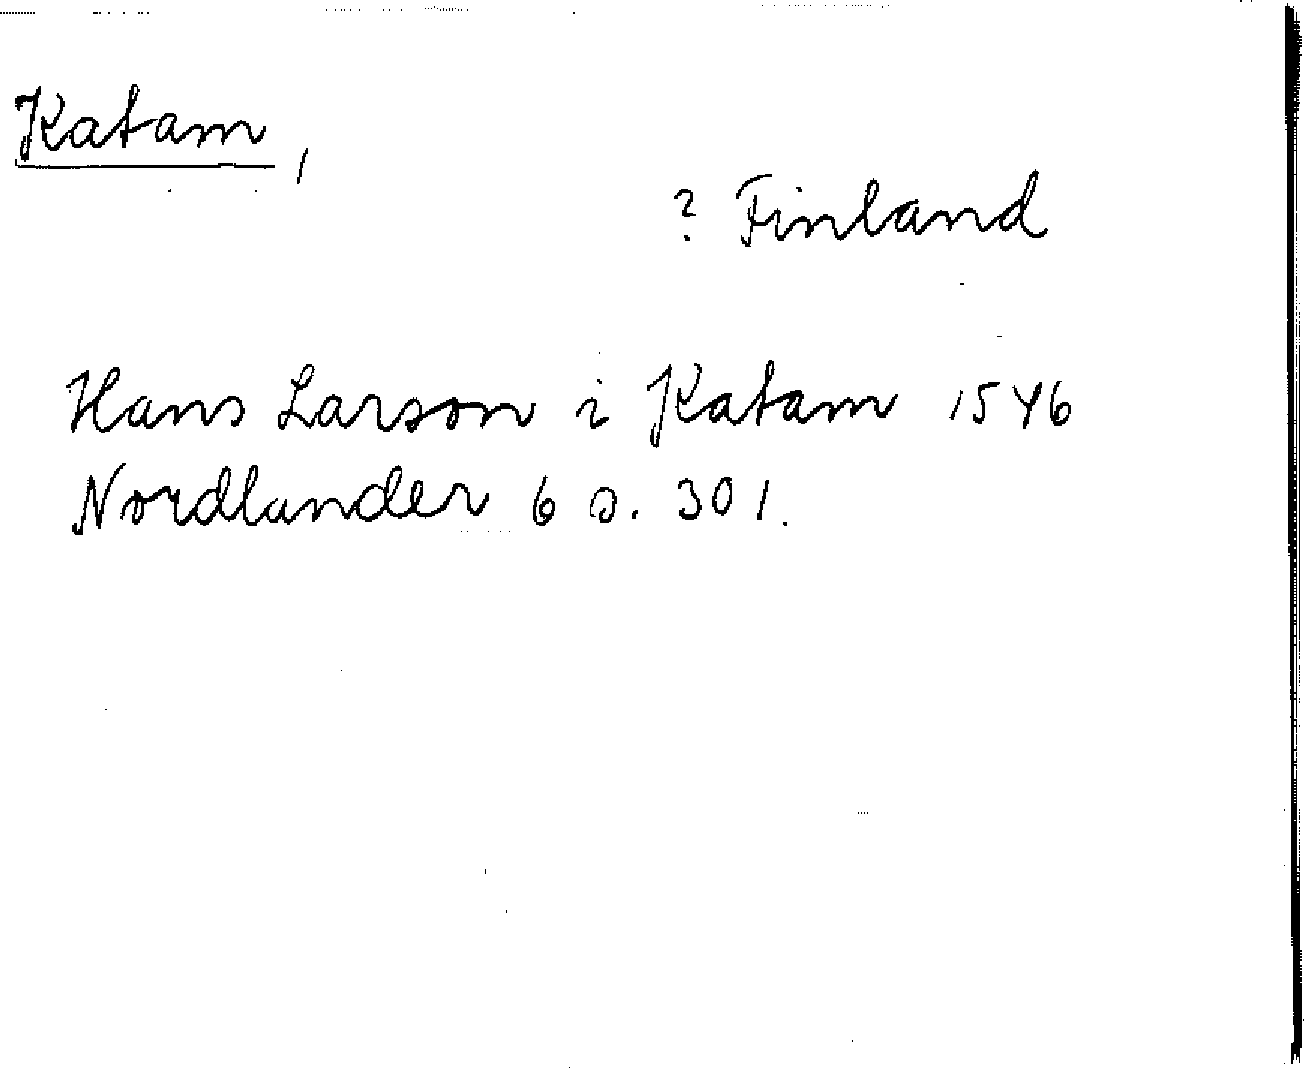 Katam,
? Finland
Hans Larson i Katam 1546
Nordlander 6 s. 301.